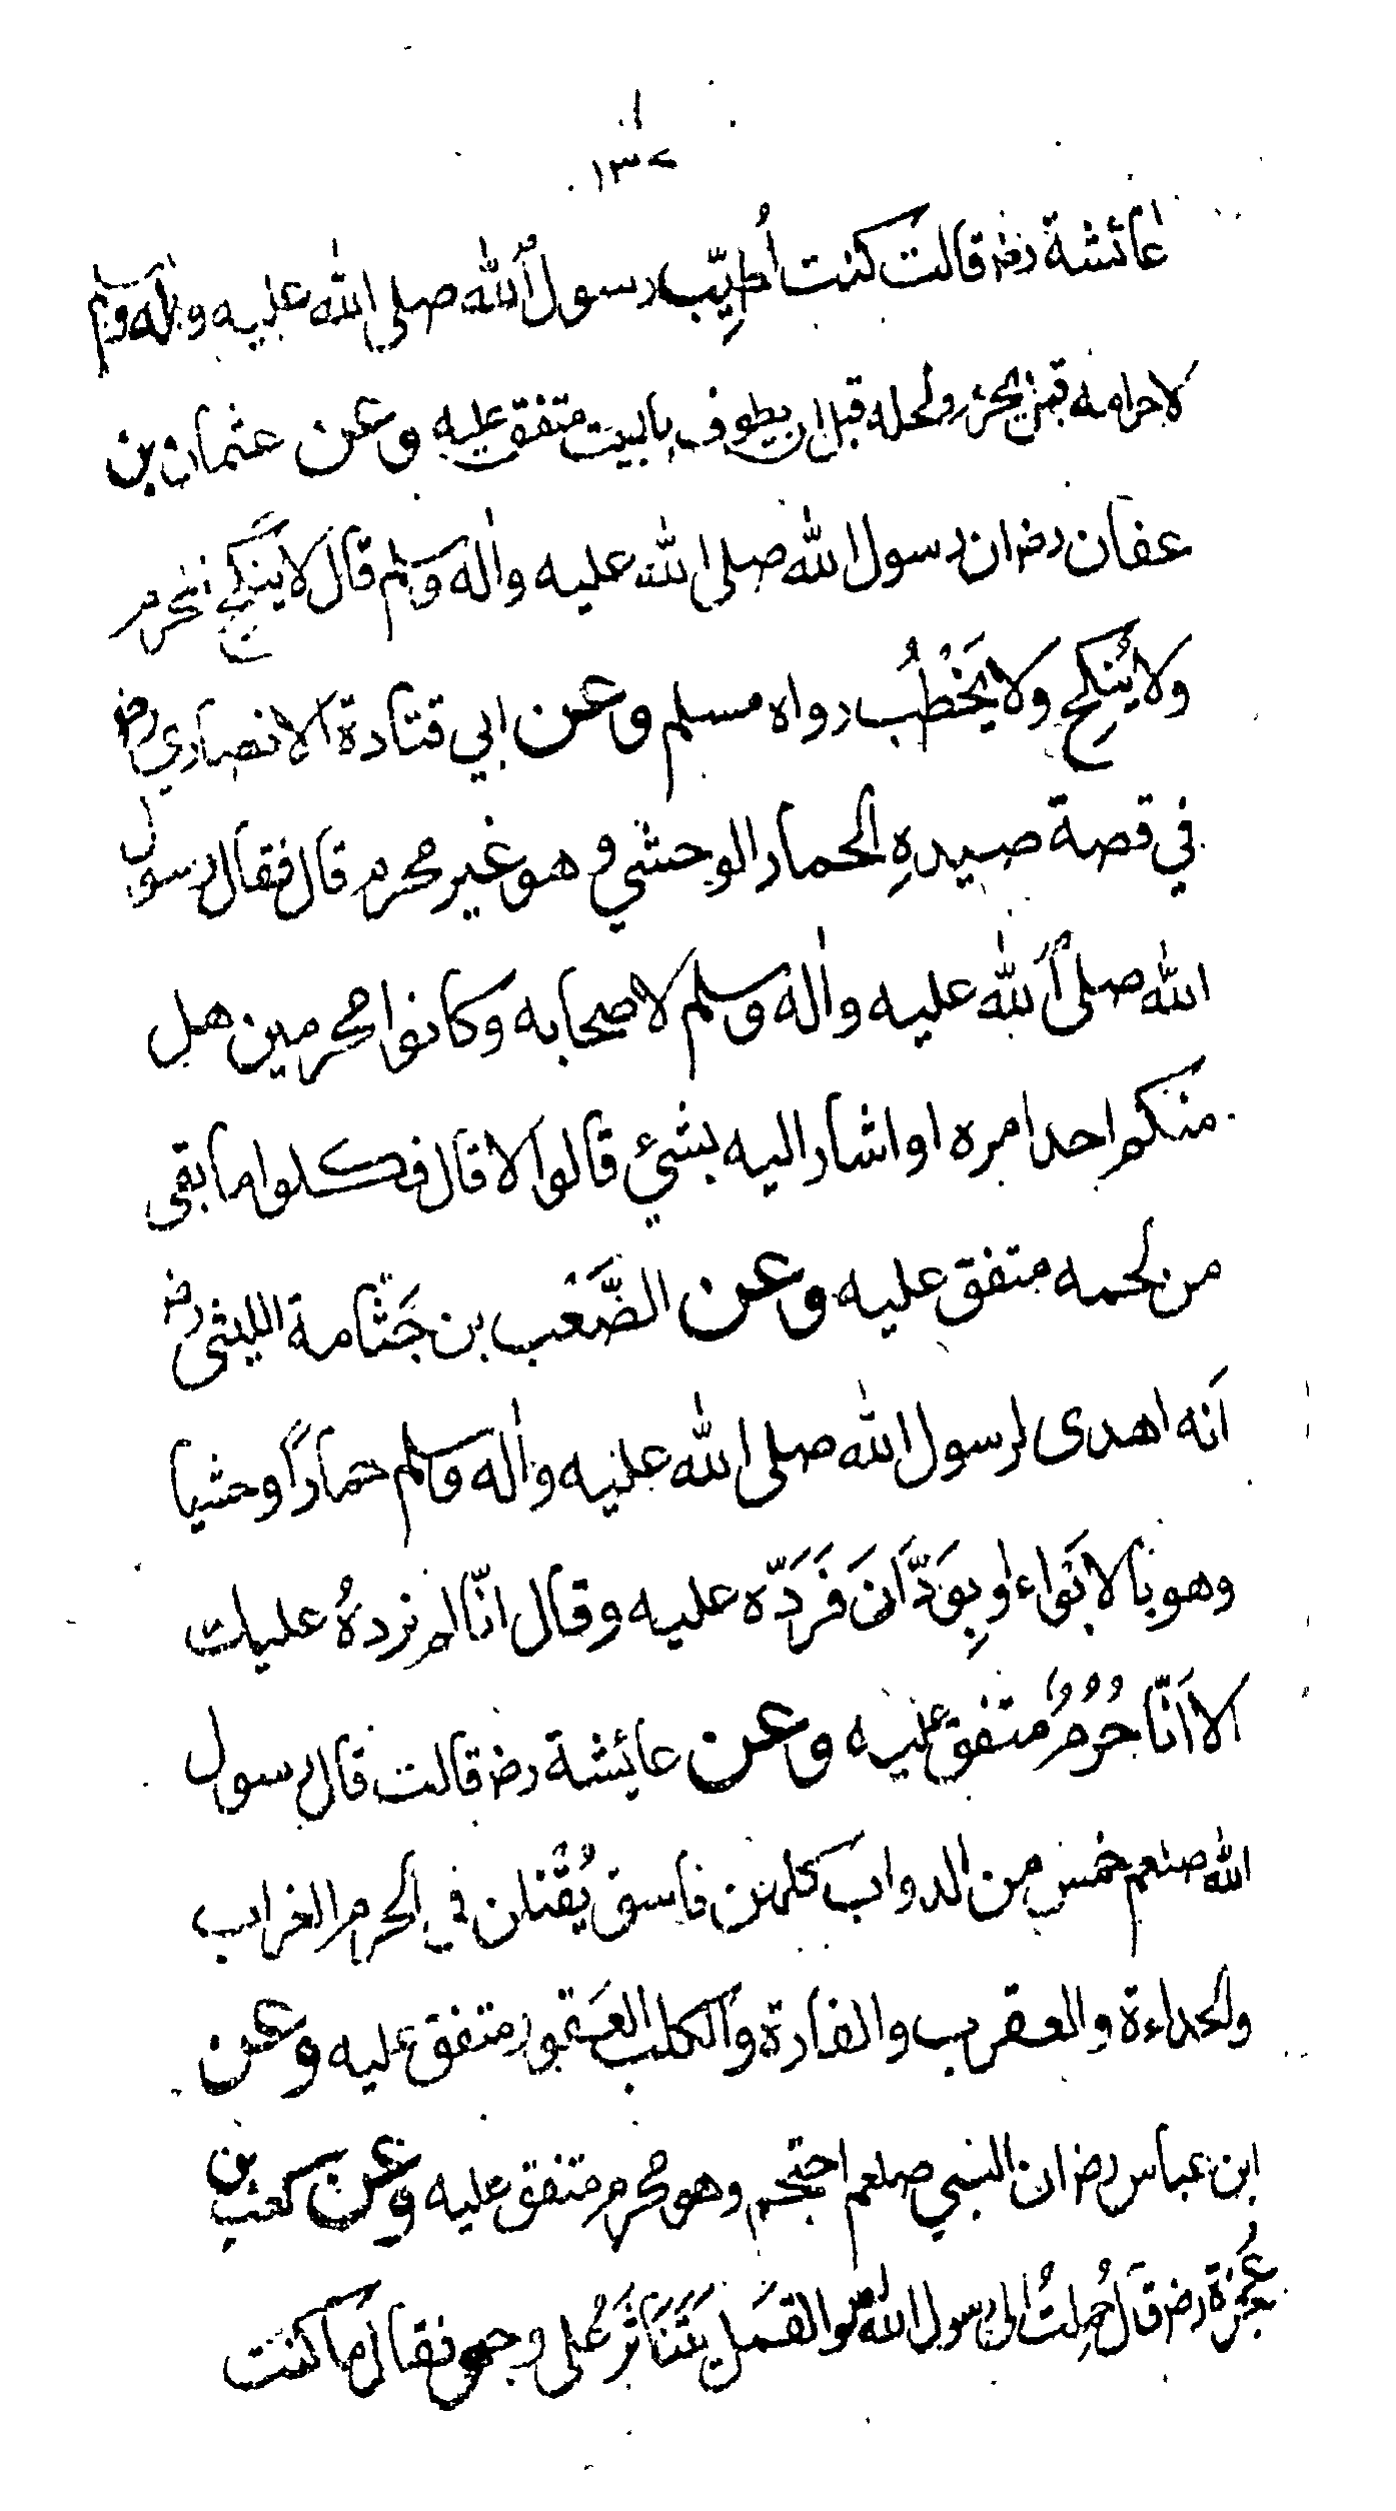 ١٣٧
عائشة رضـ قالت كنت أُطيِّب رسول الله صلى الله عليه واله وسلم
لاحرامه قبل ان يحرم ولحله قبل ان يطوف بالبيت متفق عليه وعن عثمان بن
عفان رضـ ان رسول الله صلى الله عليه واله وسلم قال لا يَنكح المحرم
ولا يُنكِح ولا يَخْطُب رواه مسلم وعن ابي قتادة الانصاري رضـ
في قصة صيدهِ الحمار الوحشي وهو غير محرم قال فقال رسول
الله صلى الله عليه واله وسلم لاصحابه وكانوا محرمين هل
منكم احد امره او اشار اليه بشئ قالوا لا قال فكلوا ما بقى
من لحمه متفق عليه وعن الضَّعْب بن جَثّامة الليثي رضـ
اَنه اهدى لرسول الله صلى الله عليه واله وسلم حماراً وحشيا
وهو بالابَواء او بِوَدَّانَ فَرَدَّه عليه وقال انّا لم نردهُ عليك
الا اَنّا حُرُمُ متفق عليه وعن عائشة رضـ قالت قال رسول
الله صلعم خمس من الدواب كلهن فاسق يُقْتلن في الحرم الغراب
ولحداءة والعقرب والفارة والكلب العَقور متفق عليه وعن
ابن عباس رضـ ان النبي صلعم احتجم وهو محرم متفق عليه وعن كعب بن
عُجْرَة رضـ قال حُمِلتُ الى رسول الله والقَمل يَتَنَاثَرُ على وجهي فقال ما كنت